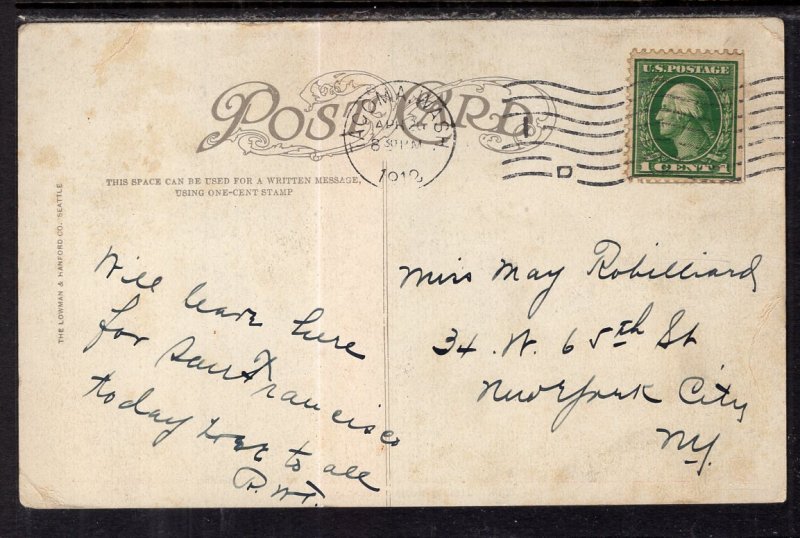 POST CARD
TACOMA, WASH
8 30 PM
U.S. POSTAGE
1 CENT 1
THIS SPACE CAN BE USED FOR A WRITTEN MESSAGE,
USING ONE-CENT STAMP
THE LOWMAN & HANFORD CO. SEATTLE
Will leave here
for San Francisco
today love to all
R.W.T.
Miss May Robilliard
34. W. 65th St
New York City
N.Y.